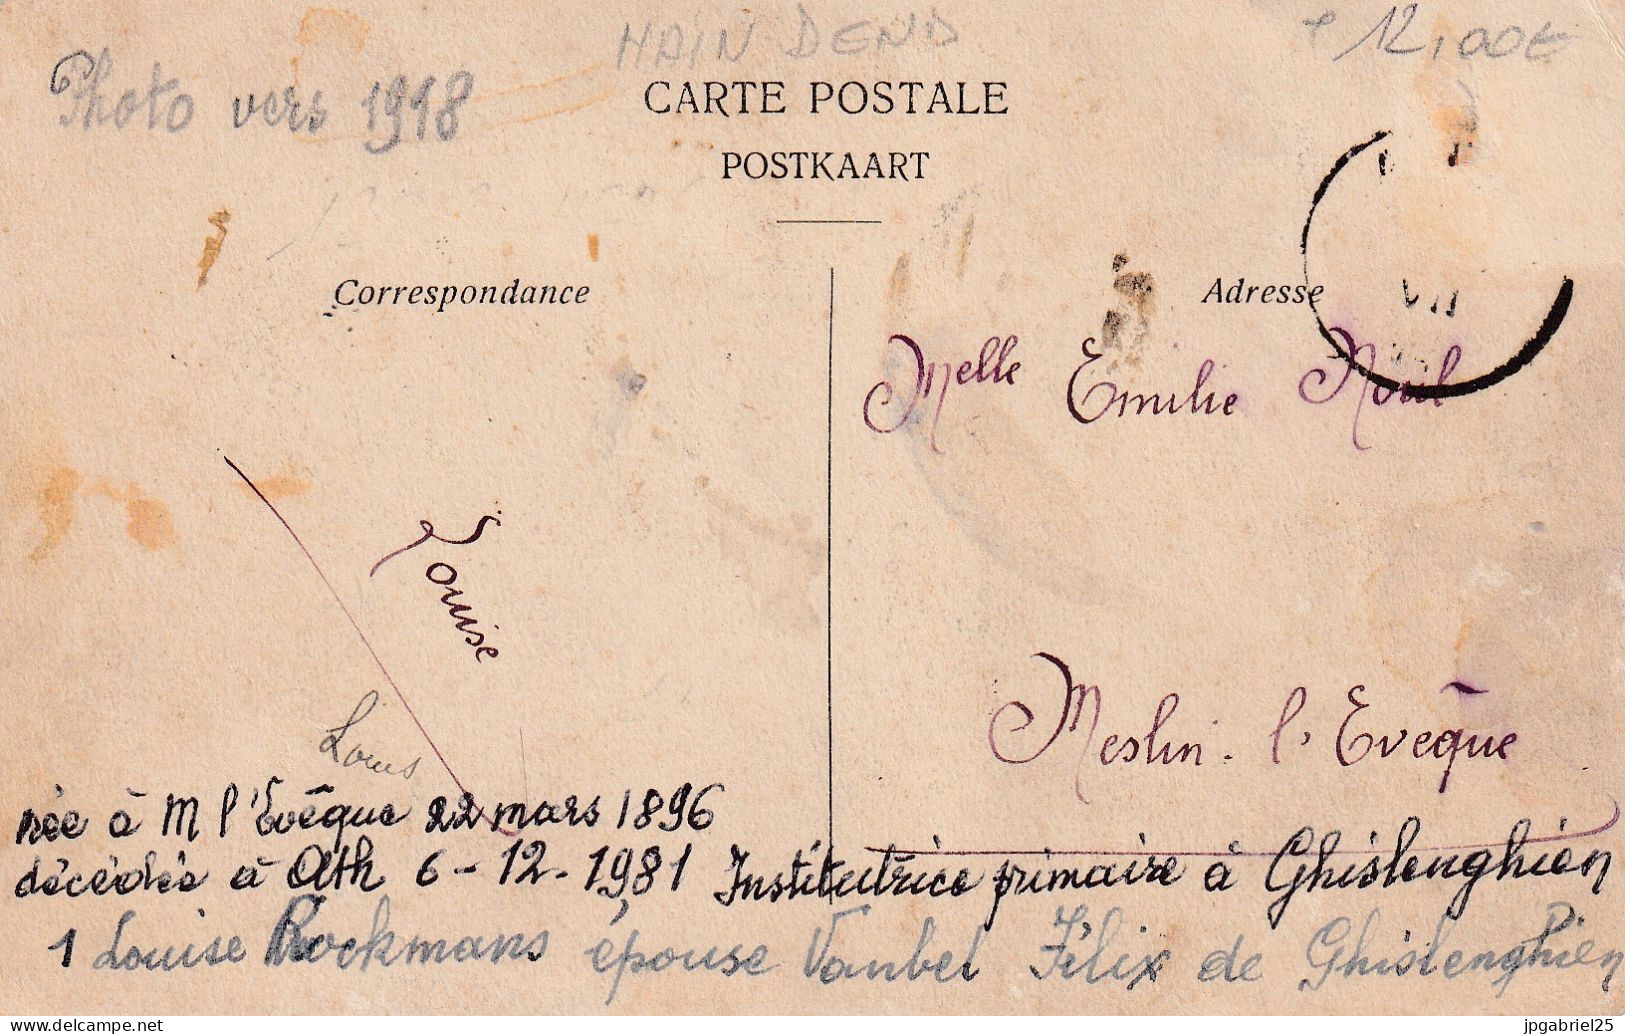 HAIN DEND
12,00€
Photo vers 1918
CARTE POSTALE
POSTKAART
Correspondance
Adresse
VII
Melle Emilie
Louise
Meslin-l'Evêque
Louis
née à M l'Evêque 22 mars 1896
décédée à Ath 6-12-1981 Institutrice primaire à Ghislenghien
1 Louise Rockmans épouse Vanbel Félix de Ghislenghien
delcampe.net
jpgabriel25